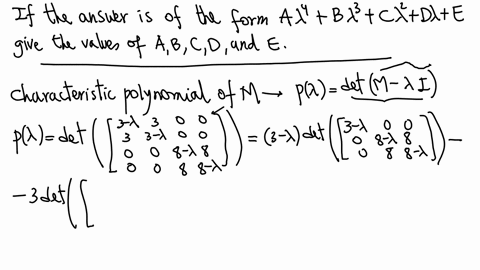 If the answer is of the form Aλ⁴ + Bλ³ + Cλ² + Dλ + E
give the values of A, B, C, D, and E.
characteristic polynomial of M → p(λ) = det(M - λI)
p(λ) = det([3-λ 3 0 0
3 3-λ 0 0
0 0 8-λ 8
0 0 8 8-λ]) = (3-λ) det([3-λ 0 0
0 8-λ 8
0 8 8-λ]) -
- 3 det([